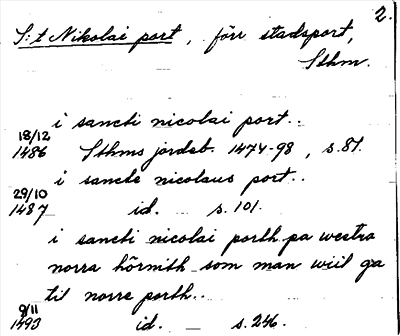 2.
S:t Nikolai port, förr stadsport,
Sthm.
i sancti nicolai port..
18/12
1486 Sthms jordeb. 1474-98, s.81.
i sancte nicolaus port..
29/10
1487 id. s.101.
i sancti nicolai porth pa westra
norra hörnith som man wiil ga
til norre porth..
9/11
1493 id. s.246.